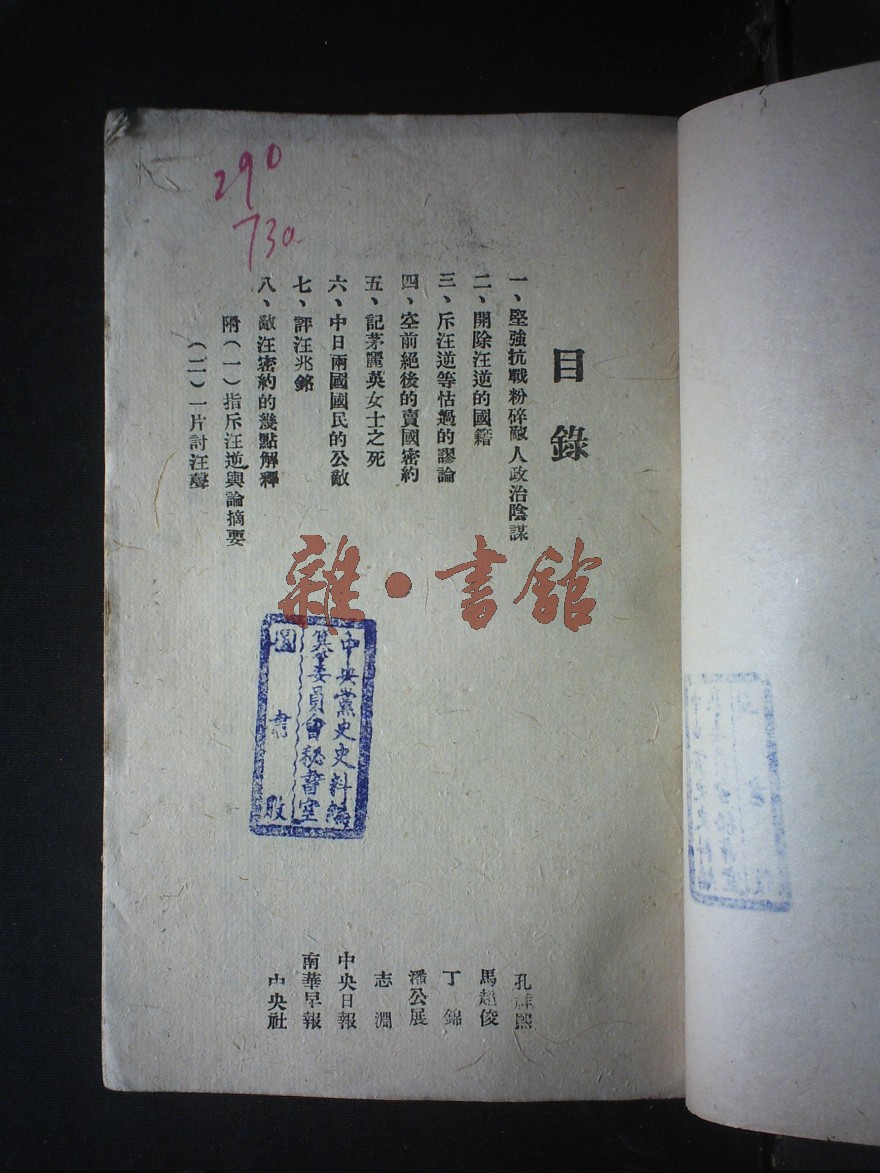 290
730
目錄
一、堅強抗戰粉碎敵人政治陰謀 孔祥熙
二、開除汪逆的國籍 馬超俊
三、斥汪逆等怙過的謬論 丁錦
四、空前絕後的賣國密約 潘公展
五、記茅麗英女士之死 志淵
六、中日兩國國民的公敵 中央日報
七、評汪兆銘 南華早報
八、敵汪密約的幾點解釋 中央社
附（一）指斥汪逆輿論摘要
（二）一片討汪聲
雜·書館
中央黨史史料編
纂委員會秘書室
圖書